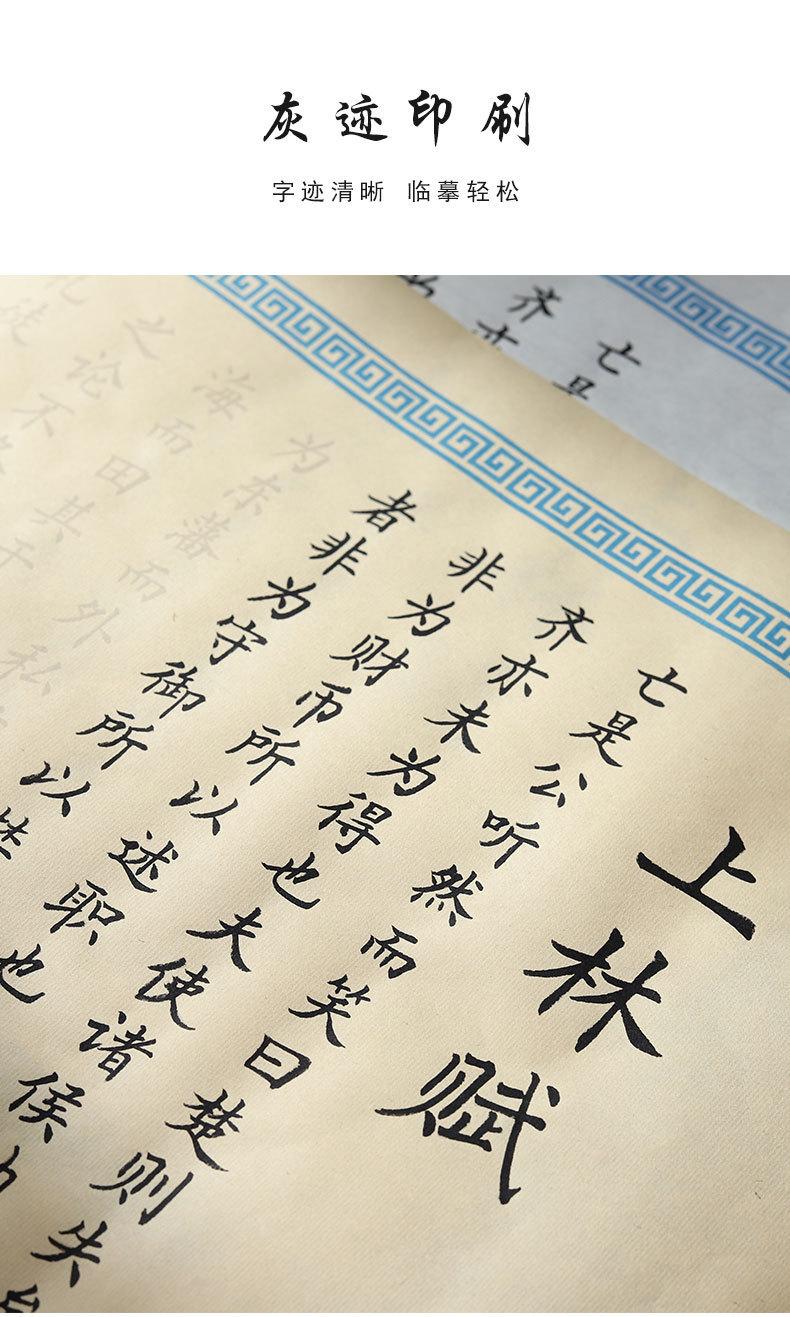 灰迹印刷
字迹清晰 临摹轻松
亡是
齐亦
上林赋
亡是公听然而笑曰楚则失
齐亦未为得也夫使诸侯
非为财币所以述职也
者非为守御所以
为东藩而外私
海而田其于
之论不
礼徒